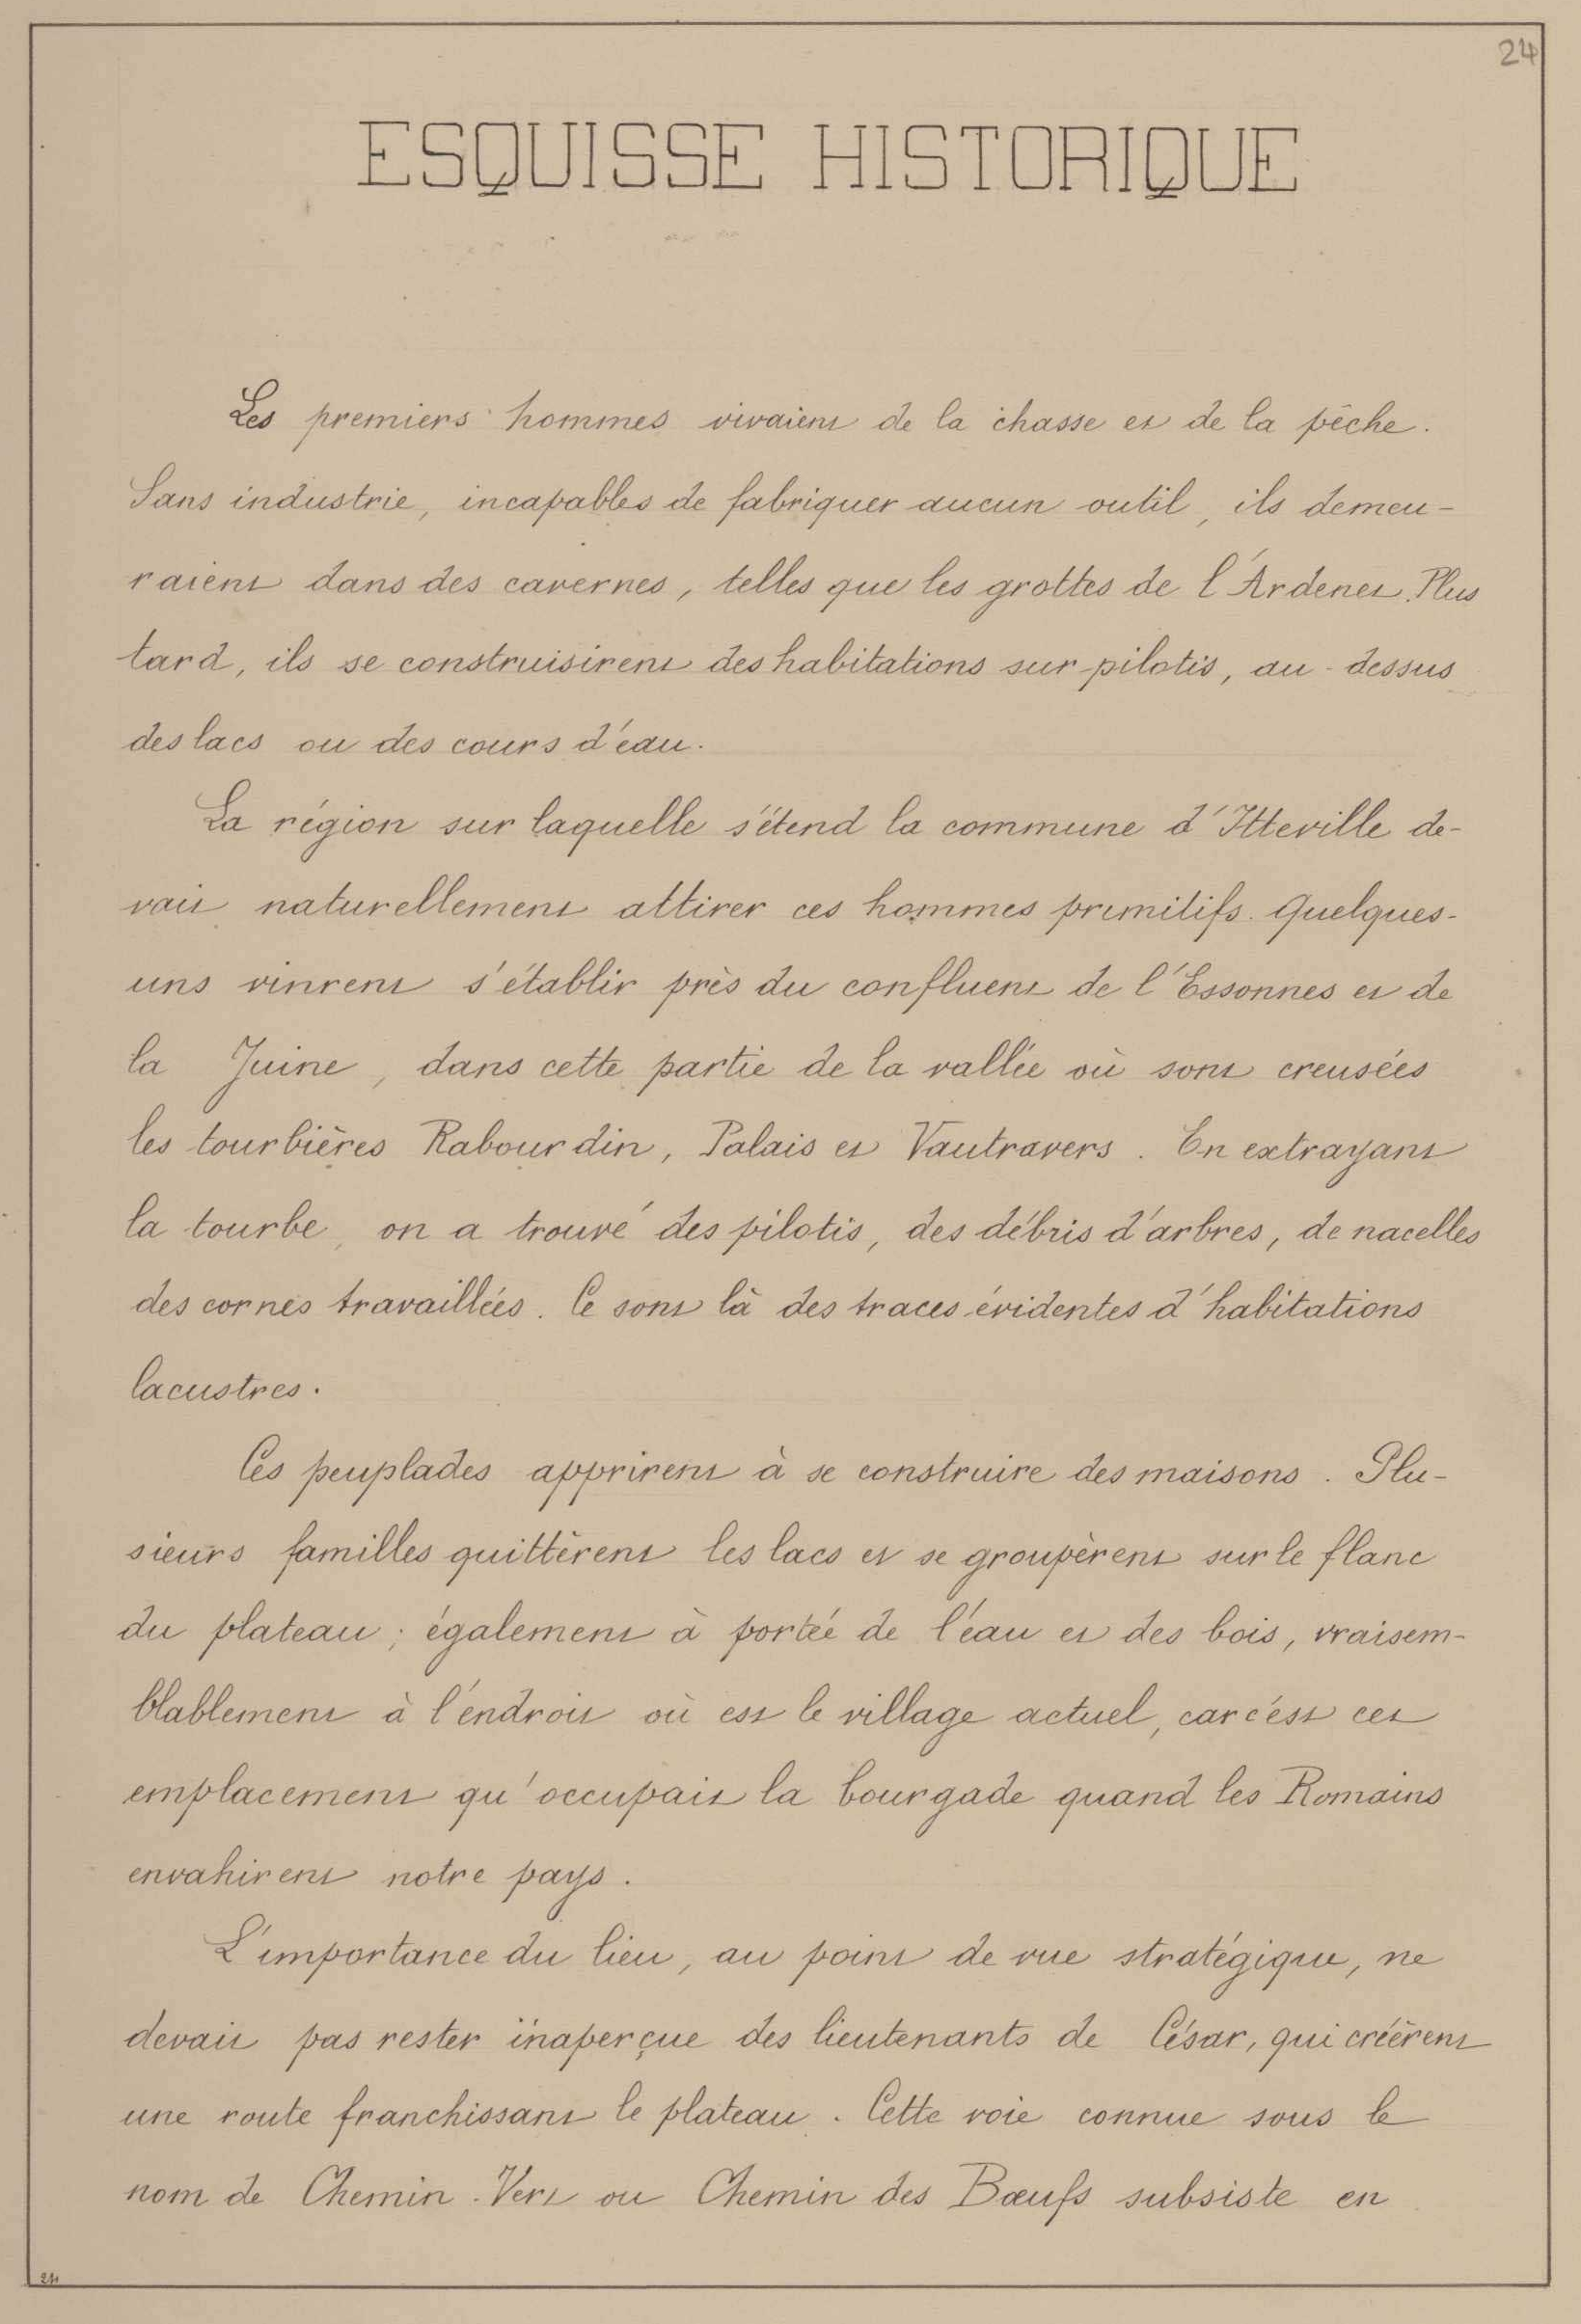 24
ESQUISSE HISTORIQUE
Les premiers hommes vivaient de la chasse et de la pêche.
Sans industrie, incapables de fabriquer aucun outil, ils demeu-
raient dans des cavernes, telles que les grottes de l'Ardenet. Plus
tard, ils se construisirent des habitations sur pilotis, au-dessus
des lacs ou des cours d'eau.
La région sur laquelle s'étend la commune d'Itteville de-
vait naturellement attirer ces hommes primitifs. Quelques-
uns vinrent s'établir près du confluent de l'Essonnes et de
la Juine, dans cette partie de la vallée où sont creusées
les tourbières Rabourdin, Palais et Vautravers. En extrayant
la tourbe, on a trouvé des pilotis, des débris d'arbres, de nacelles
des cornes travaillées. Ce sont là des traces évidentes d'habitations
lacustres.
Ces peuplades apprirent à se construire des maisons. Plu-
sieurs familles quittèrent les lacs et se groupèrent sur le flanc
du plateau; également à portée de l'eau et des bois, vraisem-
blablement à l'endroit où est le village actuel, car c'est cet
emplacement qu'occupait la bourgade quand les Romains
envahirent notre pays.
L'importance du lieu, au point de vue stratégique, ne
devait pas rester inaperçue des lieutenants de César, qui créèrent
une route franchissant le plateau. Cette voie connue sous le
nom de Chemin-Vert ou Chemin des Bœufs subsiste en
24